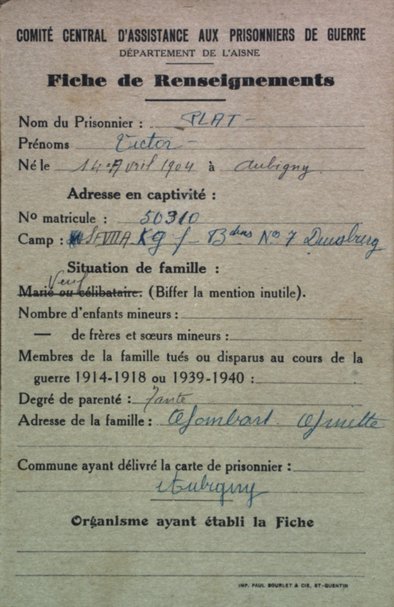 COMITÉ CENTRAL D'ASSISTANCE AUX PRISONNIERS DE GUERRE
DÉPARTEMENT DE L'AISNE
Fiche de Renseignements
Nom du Prisonnier : PLAT -
Prénoms Victor -
Né le 14 Avril 1904 à Aubigny
Adresse en captivité :
No matricule : 50310
Camp : VIIIA Kg f - No 7
Situation de famille :
Veuf
Marié ou célibataire. (Biffer la mention inutile).
Nombre d'enfants mineurs :
— de frères et sœurs mineurs :
Membres de la famille tués ou disparus au cours de la
guerre 1914-1918 ou 1939-1940 :
Degré de parenté : Tante
Adresse de la famille :
Commune ayant délivré la carte de prisonnier :
Aubigny
Organisme ayant établi la Fiche
IMP. PAUL BOURLET & CIE, ST-QUENTIN